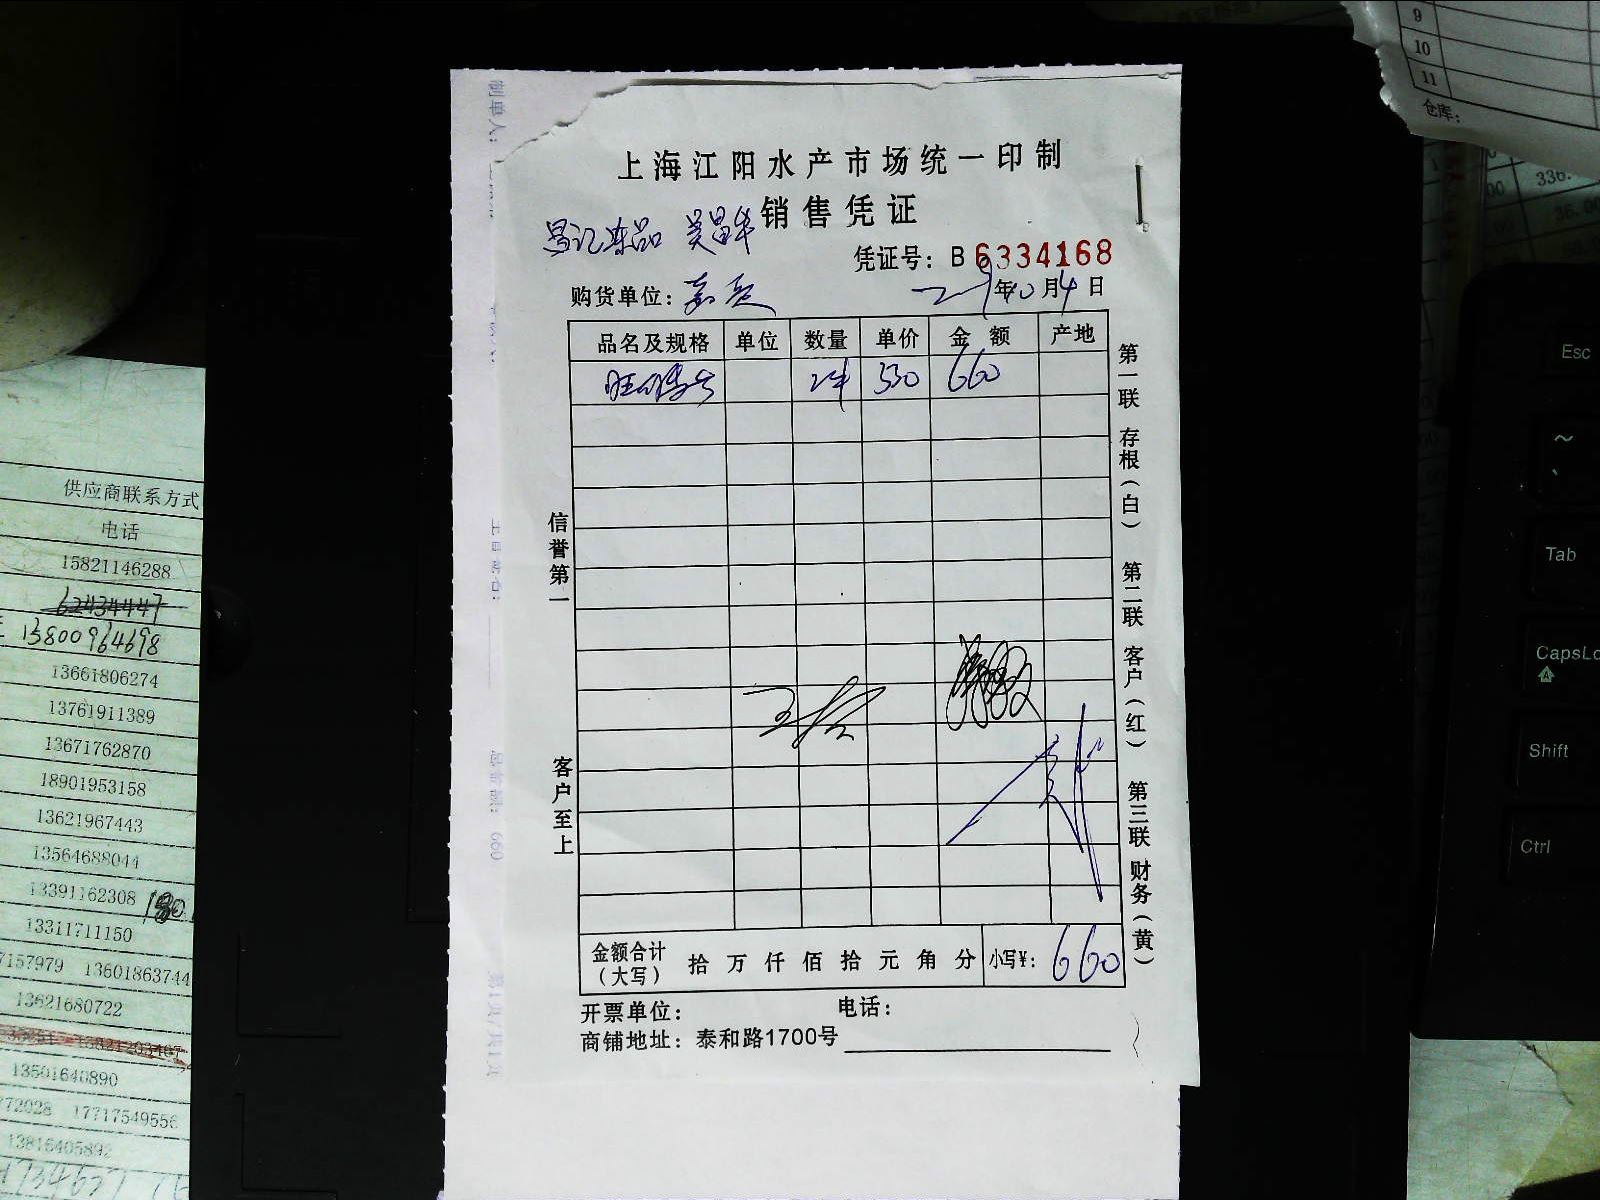 上海江阳水产市场统一印制
销售凭证
昌记冻品 吴昌华
凭证号: B 6334168
购货单位:
年10月4日
品名及规格 单位 数量 单价 金额 产地
2件 330 660
信誉第一
客户至上
第一联 存根(白) 第二联 客户(红) 第三联 财务(黄)
金额合计(大写) 拾万仟佰拾元角分 小写¥: 660
开票单位: 电话:
商铺地址: 泰和路1700号
制单人:
总金额: 660
第1页/共1页
供应商联系方式
电话
15821146288
62434447
13800964698
13661806274
13761911389
13671762870
18901953158
13621967443
13564688044
13391162308
13311711150
7157979 13601863744
13621680722
13501640890
72028 17717549556
13816405892
9
10
11
仓库:
336.
36.00
Esc
~
Tab
CapsLo
Shift
Ctrl